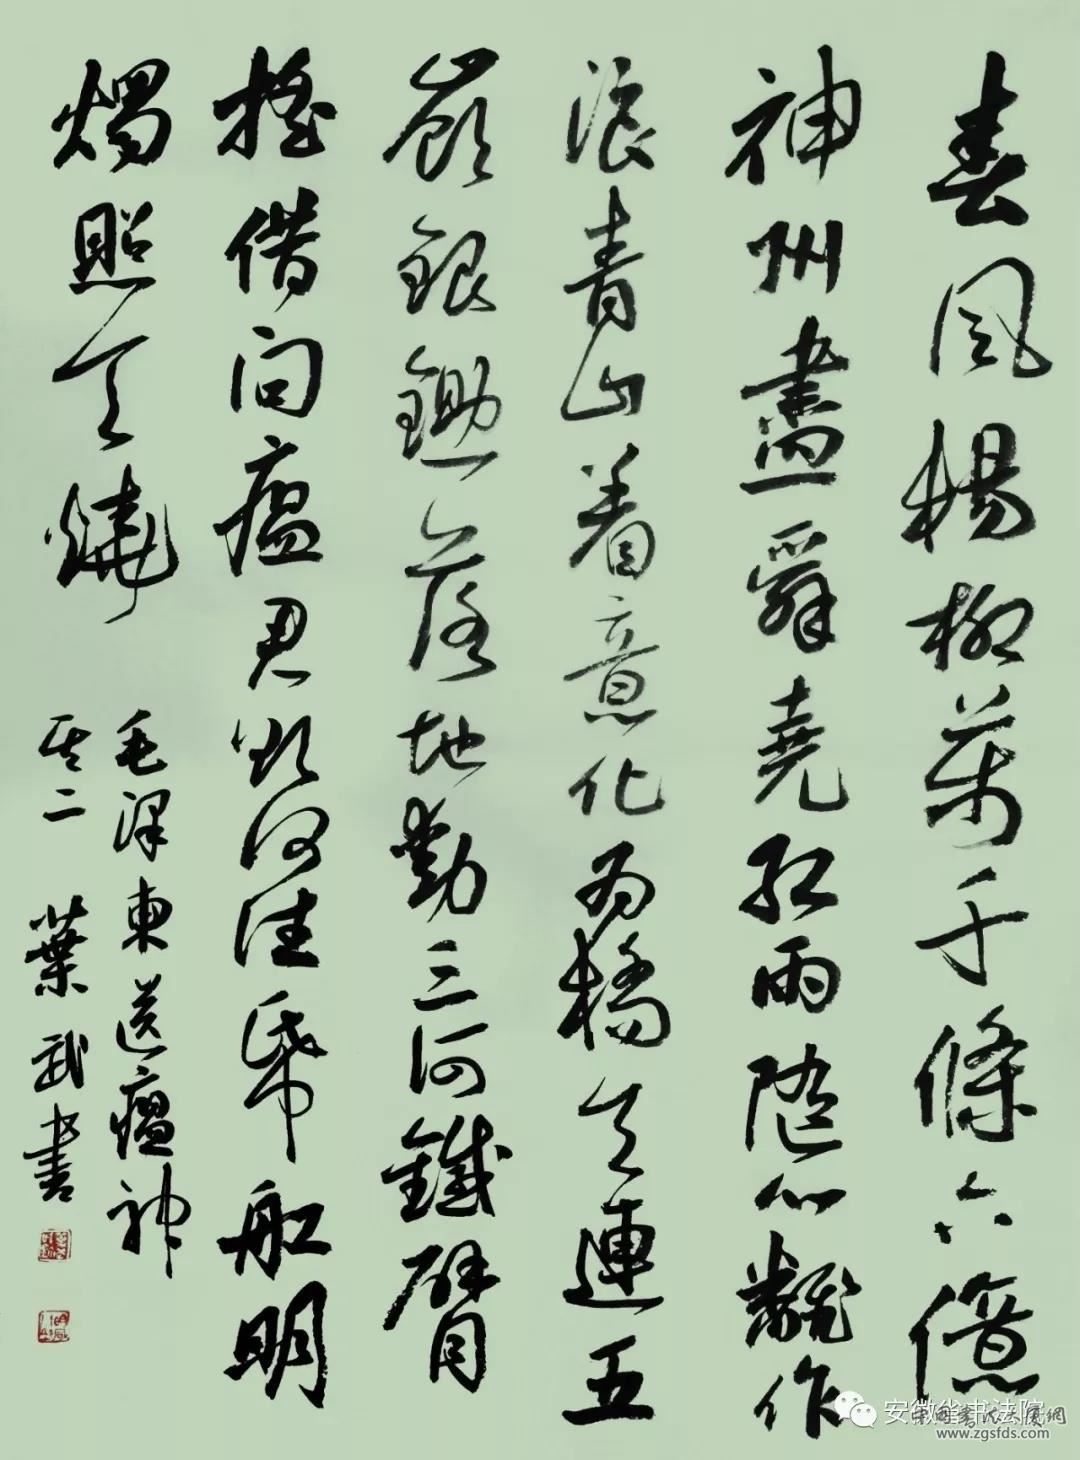 春风楊柳萬千條六億
神州盡舜堯红雨随心翻作
浪青山着意化为橋天連五
嶺銀鋤落地動三河鐵臂
摇借问瘟君欲何往纸船明
燭照天燒
毛泽東送瘟神
其二 葉武书
安徽省书法院
中国书法大厦網
www.zgsfds.com